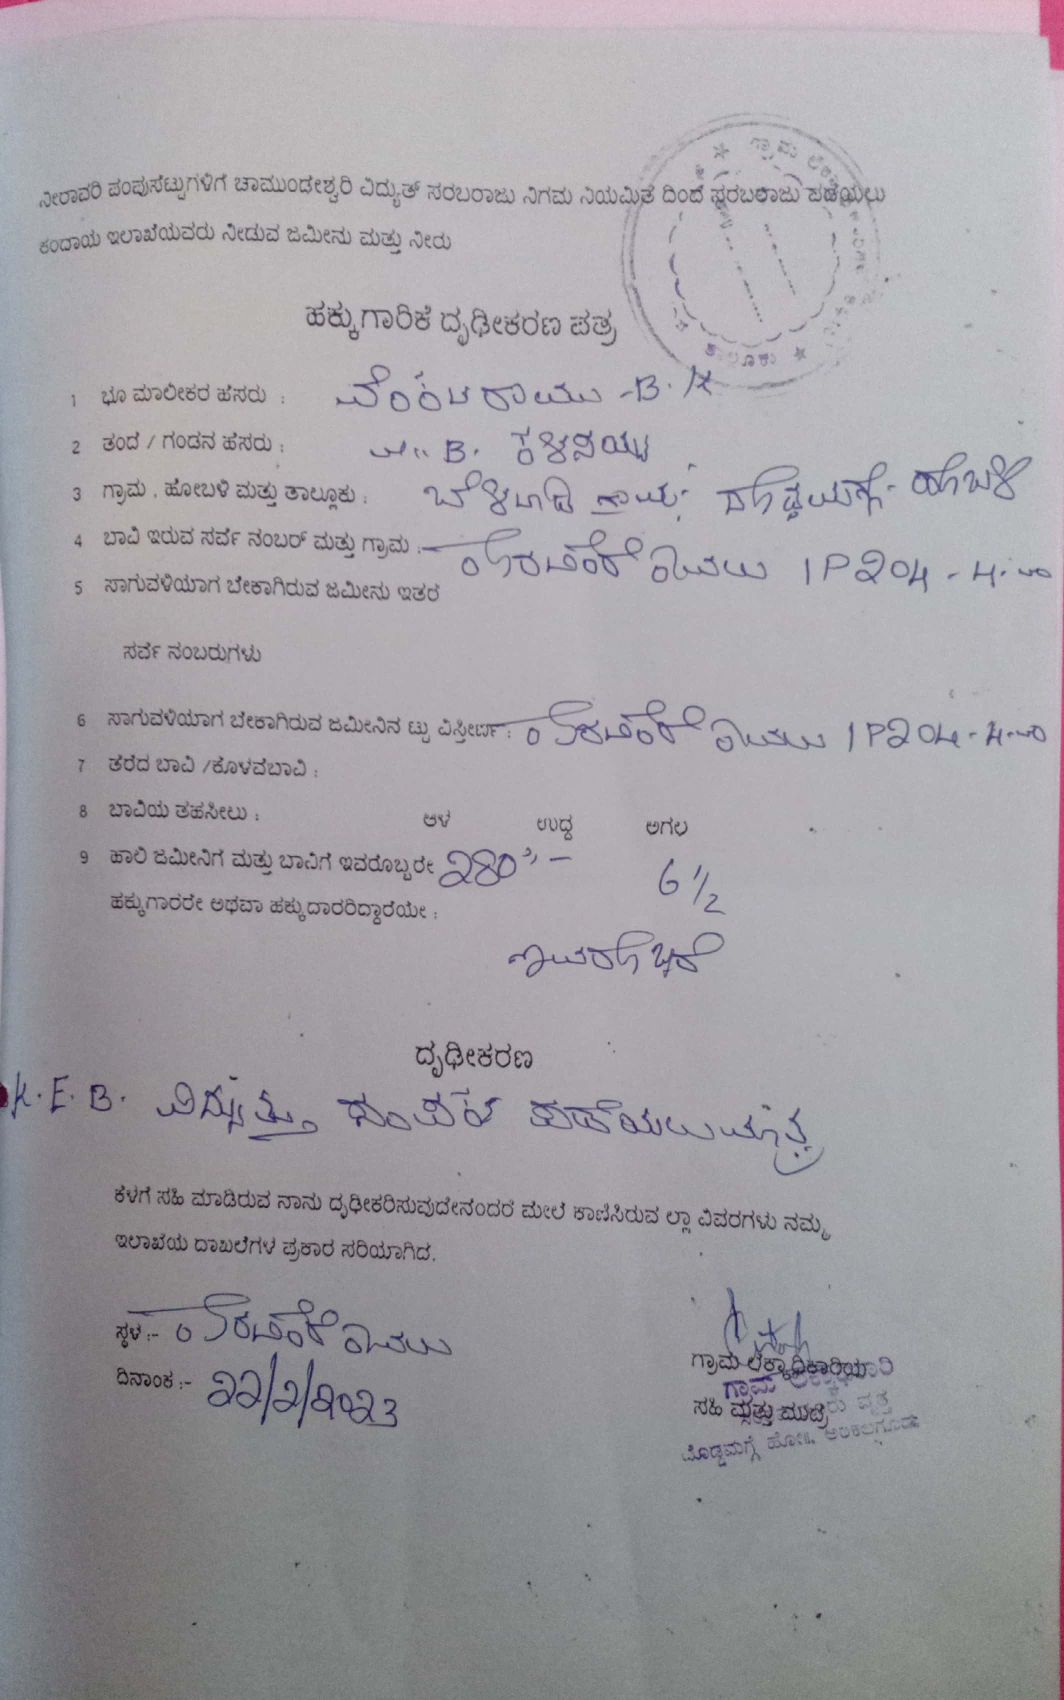 ನೀರಾವರಿ ಪಂಪುಸೆಟ್ಟುಗಳಿಗೆ ಚಾಮುಂಡೇಶ್ವರಿ ವಿದ್ಯುತ್ ಸರಬರಾಜು ನಿಗಮ ನಿಯಮಿತ ದಿಂದ ಸರಬರಾಜು ಪಡೆಯಲು
ಕಂದಾಯ ಇಲಾಖೆಯವರು ನೀಡುವ ಜಮೀನು ಮತ್ತು ನೀರು
ಹಕ್ಕುಗಾರಿಕೆ ದೃಢೀಕರಣ ಪತ್ರ
1 ಭೂ ಮಾಲೀಕರ ಹೆಸರು : ವೆಂಕಟರಾಮು -B.K
2 ತಂದೆ / ಗಂಡನ ಹೆಸರು : B.
3 ಗ್ರಾಮ . ಹೋಬಳಿ ಮತ್ತು ತಾಲ್ಲೂಕು : ಬೆಳವಾಡಿ ಗ್ರಾಮ. ದೊಡ್ಡಮಗ್ಗೆ ಹೋಬಳಿ
4 ಬಾವಿ ಇರುವ ಸರ್ವೆ ನಂಬರ್ ಮತ್ತು ಗ್ರಾಮ : 1P204-4-00
5 ಸಾಗುವಳಿಯಾಗ ಬೇಕಾಗಿರುವ ಜಮೀನು ಇತರೆ
ಸರ್ವೆ ನಂಬರುಗಳು
6 ಸಾಗುವಳಿಯಾಗ ಬೇಕಾಗಿರುವ ಜಮೀನಿನ ಟ್ಟು ವಿಸ್ತೀರ್ಣ : 1P204-4-00
7 ತೆರೆದ ಬಾವಿ /ಕೊಳವೆಬಾವಿ :
8 ಬಾವಿಯ ತಹಸೀಲು : ಆಳ ಉದ್ದ ಅಗಲ
9 ಹಾಲಿ ಜಮೀನಿಗೆ ಮತ್ತು ಬಾವಿಗೆ ಇವರೊಬ್ಬರೇ 280' — 6 1/2
ಹಕ್ಕುಗಾರರೇ ಅಥವಾ ಹಕ್ಕುದಾರರಿದ್ದಾರೆಯೇ :
ಇವರೊಬ್ಬರೆ
ದೃಢೀಕರಣ
K.E.B. ವಿದ್ಯುತ್ತು ಸಂಪರ್ಕ ಪಡೆಯಲು ಮಾತ್ರ
ಕೆಳಗೆ ಸಹಿ ಮಾಡಿರುವ ನಾನು ದೃಢೀಕರಿಸುವುದೇನಂದರೆ ಮೇಲೆ ಕಾಣಿಸಿರುವ ಲ್ಲಾ ವಿವರಗಳು ನಮ್ಮ
ಇಲಾಖೆಯ ದಾಖಲೆಗಳ ಪ್ರಕಾರ ಸರಿಯಾಗಿದೆ.
ಸ್ಥಳ :-
ದಿನಾಂಕ :- 22/2/2023
ಗ್ರಾಮ ಲೆಕ್ಕಾಧಿಕಾರಿಯ
ಸಹಿ ಮತ್ತು ಮುದ್ರೆ
ದೊಡ್ಡಮಗ್ಗೆ ಹೋ॥, ಅರಕಲಗೂಡು